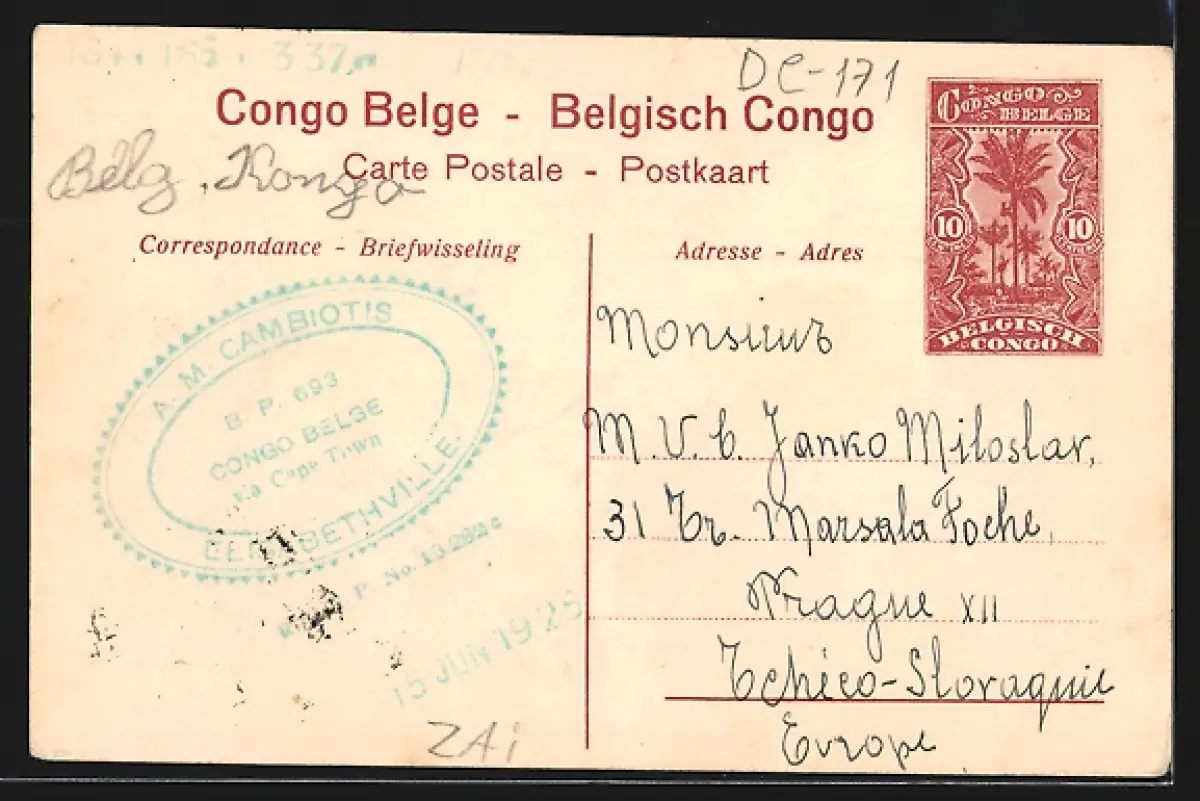 337
DC-171
Congo Belge - Belgisch Congo
Carte Postale - Postkaart
Belg. Kongo
Correspondance - Briefwisseling
Adresse - Adres
CONGO
BELGE
10 10
BELGISCH
CONGO
A. M. CAMBIOTIS
B. P. 693
CONGO BELGE
via Cape Town
15 JUN 1925
ZAi
Monsieur
M. V. b. Janko Miloslav,
31 Tr. Marsala Foche,
Prague XII
Tchéco-Slovaquie
Europe